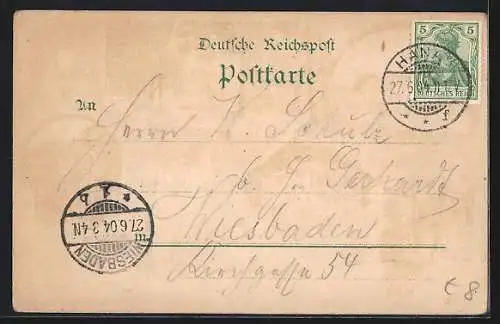 Deutsche Reichspost
Postkarte
5 5
DEUTSCHES REICH
HANAU
27.6.04
* * f
An
Herrn K. Schulz
b. J. Gerhardt
in Wiesbaden
Kirchgasse 54
WIESBADEN
27.6.04 3-4N
* 1 b
€8